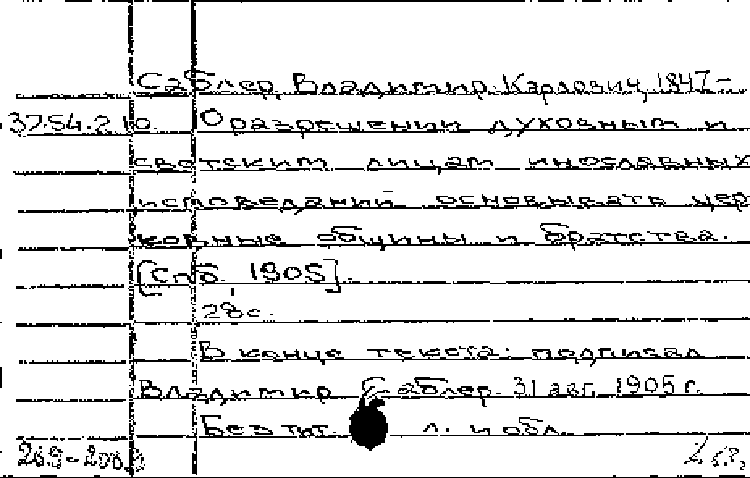 Саблер, Владимир Карлович, 1847-
3754.210 О разрешении духовным и
светским лицам инославных
исповеданий основывать цер
ковные общины и братства.
[Спб, 1905].
28 с.
В конце текста: подписал
Владимир Саблер. 31 авг. 1905 г.
Без тит. л. и обл.